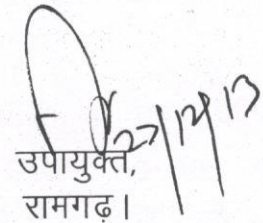 27/12/13
उपायुक्त,
रामगढ़।